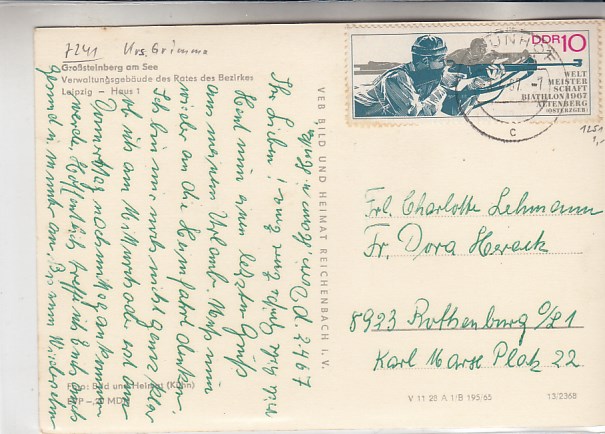 7241 Urs. Grimma
Großsteinberg am See
Verwaltungsgebäude des Rates des Bezirkes
Leipzig – Haus 1
DDR 10
WELT
MEISTER
SCHAFT
BIATHLON 1967
ALTENBERG
(OSTERZGEB.)
C
1251
VEB BILD UND HEIMAT REICHENBACH I. V.
d. 2 9 67
Ihr Lieben!
Habt nun einen letzten Gruß
aus meinem Urlaub. Muß nun
wieder an die Heimfahrt denken.
Ich bin mir noch nicht ganz klar
ob ich am Mittwoch oder erst am
Donnerstag nachmittag ankommen
werde. Hoffentlich treffe ich Euch auch
gesund u. munter an. Bis zum Wiedersehn
Frl. Charlotte Lehmann
Fr. Dora Herack
8923 Rothenburg O/L 1
Karl Marx Platz 22
Foto: Bild und Heimat (Kühn)
V 11 28 A 1/B 195/65
13/2368